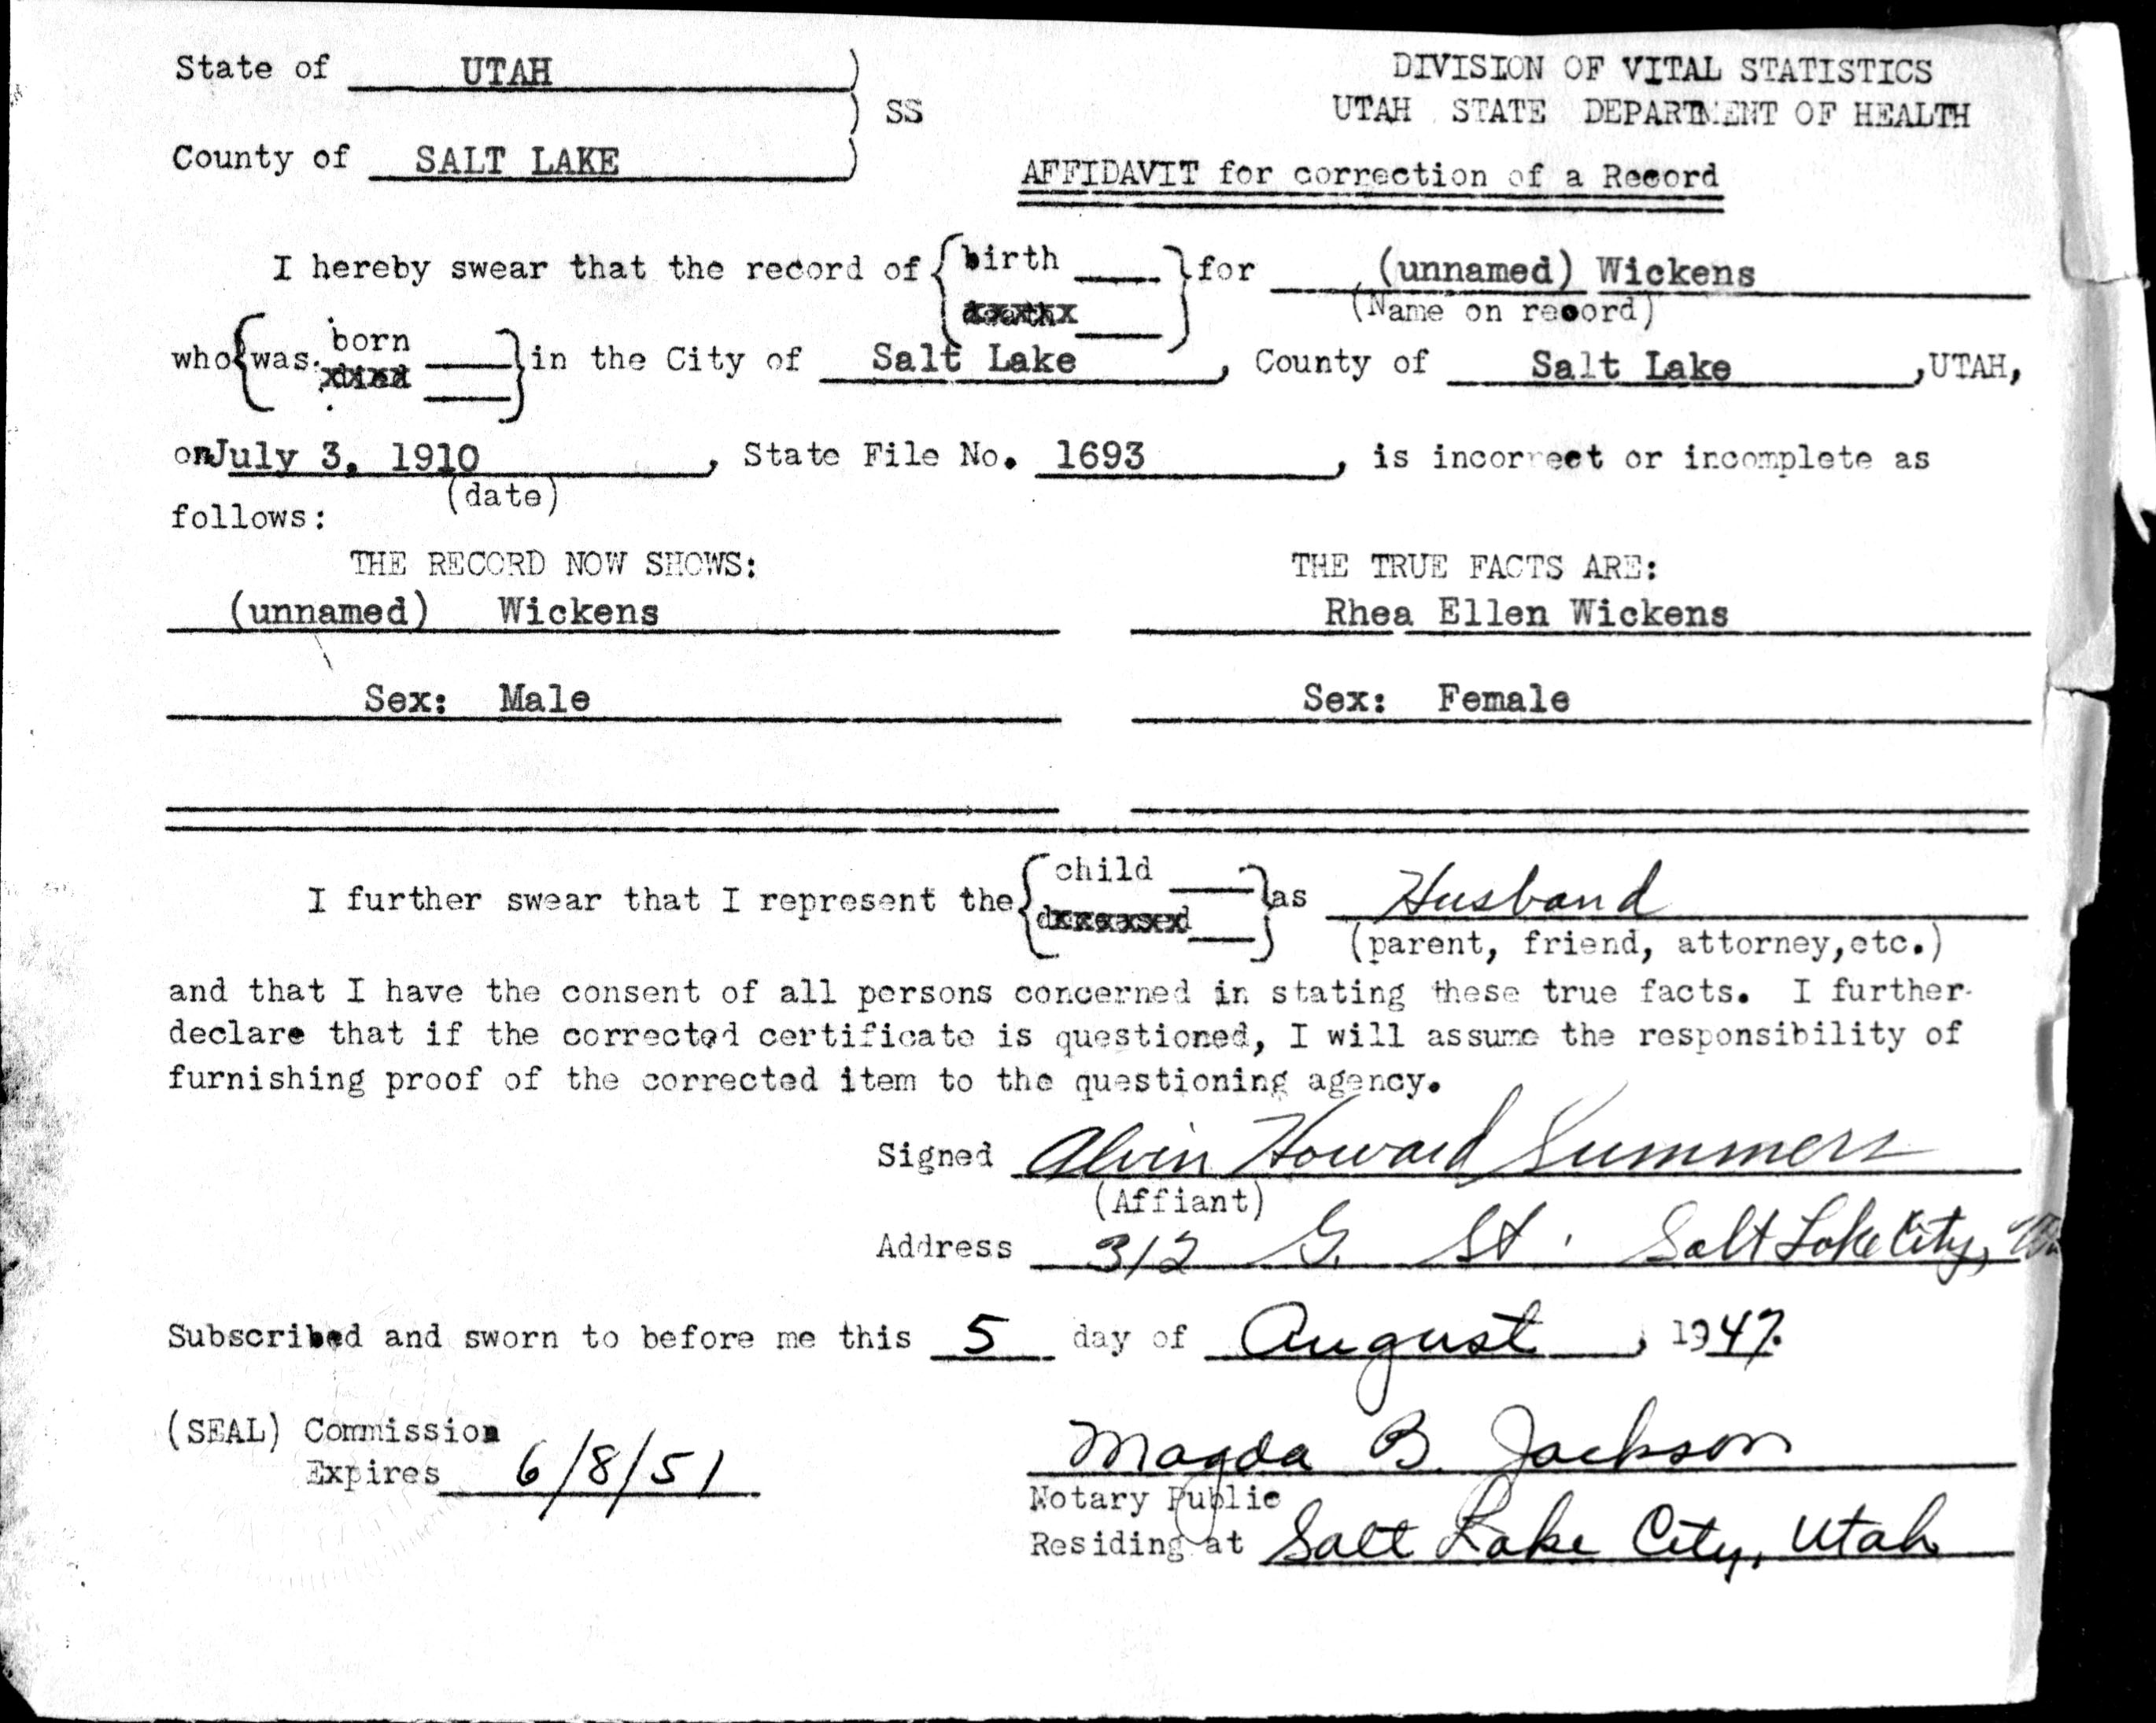 State of UTAH ) DIVISION OF VITAL STATISTICS
) SS UTAH STATE DEPARTMENT OF HEALTH
County of SALT LAKE )
AFFIDAVIT for correction of a Record
I hereby swear that the record of { birth ____ } for (unnamed) Wickens
death ____ (Name on record)
who { was born ____ } in the City of Salt Lake, County of Salt Lake, UTAH,
died ____
on July 3, 1910, State File No. 1693, is incorrect or incomplete as
(date)
follows:
THE RECORD NOW SHOWS: THE TRUE FACTS ARE:
(unnamed) Wickens Rhea Ellen Wickens
Sex: Male Sex: Female
I further swear that I represent the { child ____ } as Husband
deceased ____ (parent, friend, attorney, etc.)
and that I have the consent of all persons concerned in stating these true facts. I further
declare that if the corrected certificate is questioned, I will assume the responsibility of
furnishing proof of the corrected item to the questioning agency.
Signed Alvin Howard Summers
(Affiant)
Address 312 G. St. Salt Lake City,
Subscribed and sworn to before me this 5 day of August, 1947.
(SEAL) Commission
Expires 6/8/51
Magda B. Jackson
Notary Public
Residing at Salt Lake City, Utah